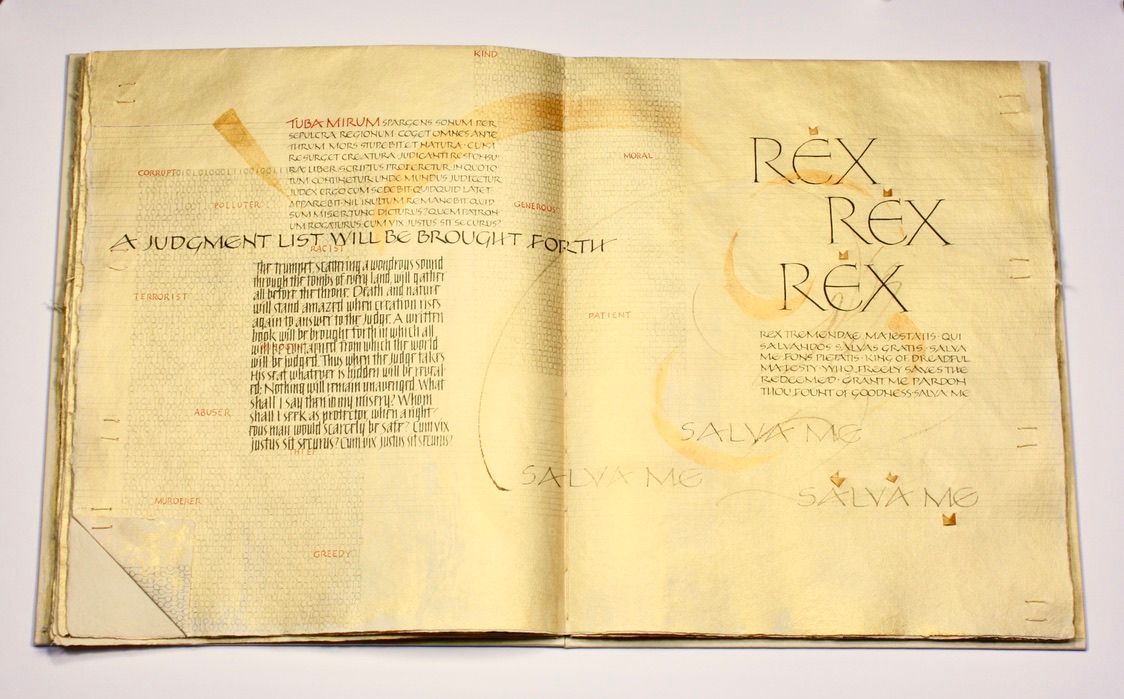 KIND
TUBA MIRUM SPARGENS SONUM PER
SEPULCRA REGIONUM COGET OMNES ANTE
THRUM MORS STUPEBIT ET NATURA · CUM
RESURGET CREATURA JUDICANTI RESPONSU
RA LIBER SCRIPTUS PROFERETUR IN QUO TO
TUM CONTINETUR UNDE MUNDUS JUDICETUR
JUDEX ERGO CUM SEDEBIT QUIDQUID LATET
APPAREBIT · NIL INULTUM REMANEBIT QUID
SUM MISER TUNC DICTURUS? QUEM PATRON
UM ROGATURUS · CUM VIX JUSTUS SIT SECURUS?
CORRUPT
POLLUTER
GENEROUS
A JUDGMENT LIST WILL BE BROUGHT FORTH
RACIST
The trumpet, scattering a wondrous sound
through the tombs of every land, will gather
all before the throne. Death and nature
will stand amazed when creation rises
again to answer to the judge. A written
book will be brought forth in which all
will be contained from which the world
will be judged. Thus when the judge takes
His seat whatever is hidden will be reveal
ed: Nothing will remain unavenged. What
shall I say then in my misery? Whom
shall I seek as protector, when a right
eous man would scarcely be safe? Cum vix
justus sit securus? Cum vix justus sit securus?
TERRORIST
ABUSER
THIEF
MURDERER
GREEDY
MORAL
PATIENT
REX
REX
REX
REX TREMENDAE MAJESTATIS · QUI
SALVANDOS SALVAS GRATIS · SALVA
ME · FONS PIETATIS · KING OF DREADFUL
MAJESTY · WHO FREELY SAVES THE
REDEEMED · GRANT ME PARDON
THOU FOUNT OF GOODNESS · SALVA ME
SALVA ME
SALVA ME
SALVA ME